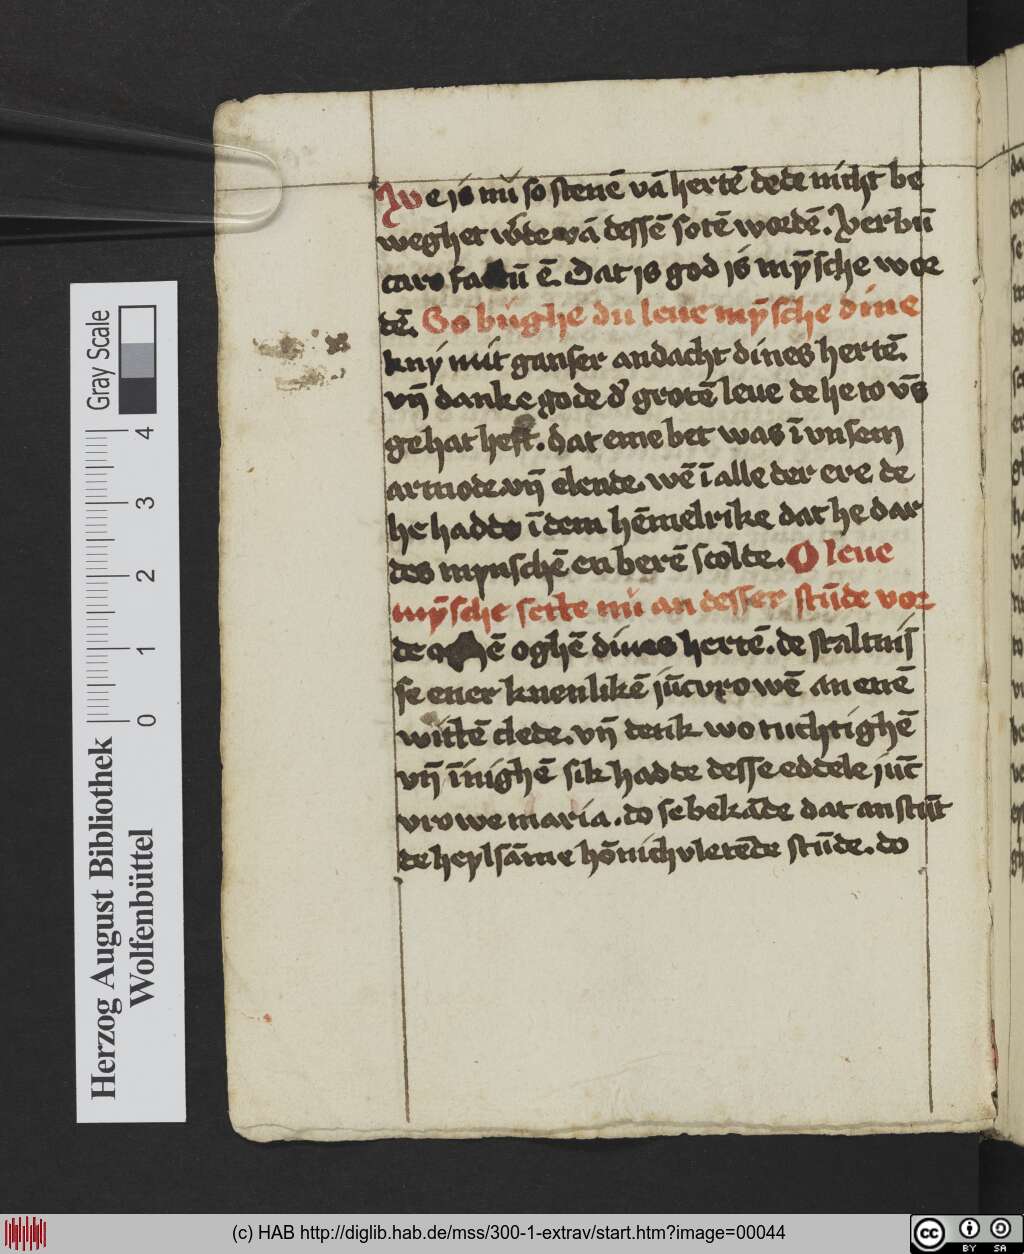 We is nu so stenē vā hertē de de nicht be
weghet w̄de vā dessē sotē wordē. Verbū
caro factū ē. Dat is god is mȳsche wor
dē. So bughe du leue mȳsche dine
kny mit ganser andacht dines hertē.
vn̄ danke gode d' grotē leue de he to vn̄s
gehat heft. dat eme bet was ī vnsem
armode vn̄ elende. wē ī alle der ere de
he hadde ī dem hēmelrike dat he dar
des mynschē enberē scolde. O leue
mȳsche sette nu an desser stūde vor
de oghē dines hertē. de staltnis
se ener kuenlikē jūcvrowē an enē
wittē clede. vn̄ denk wo tuchtighē
vn̄ īnighē sik hadde desse eddele jūc
vrowe maria. do se bekāde dat anstūt
de heylsāme hōnichvletēde stūde. do
Gray Scale
4
3
2
1
0
Herzog August Bibliothek
Wolfenbüttel
(c) HAB http://diglib.hab.de/mss/300-1-extrav/start.htm?image=00044
cc BY SA